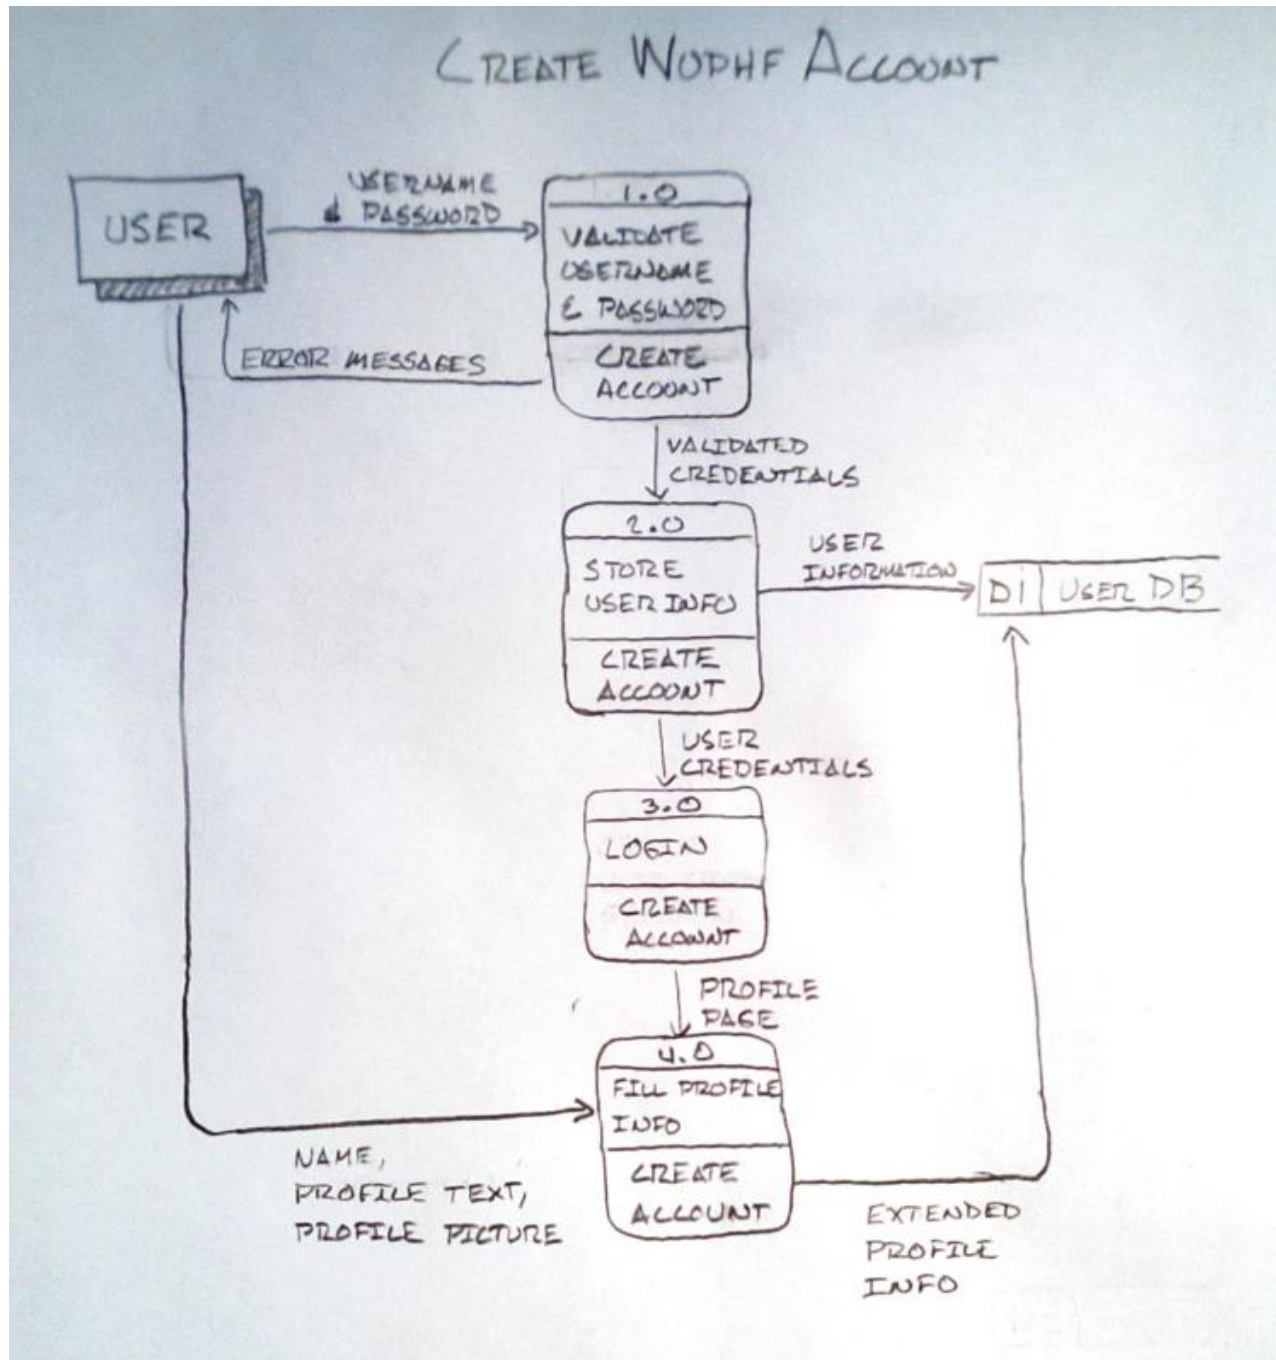 CREATE WUPHF ACCOUNT
USER
USERNAME
& PASSWORD
1.0
VALIDATE
USERNAME
& PASSWORD
CREATE
ACCOUNT
ERROR MESSAGES
VALIDATED
CREDENTIALS
2.0
STORE
USER INFO
CREATE
ACCOUNT
USER
INFORMATION
D1 USER DB
USER
CREDENTIALS
3.0
LOGIN
CREATE
ACCOUNT
PROFILE
PAGE
4.0
FILL PROFILE
INFO
CREATE
ACCOUNT
NAME,
PROFILE TEXT,
PROFILE PICTURE
EXTENDED
PROFILE
INFO